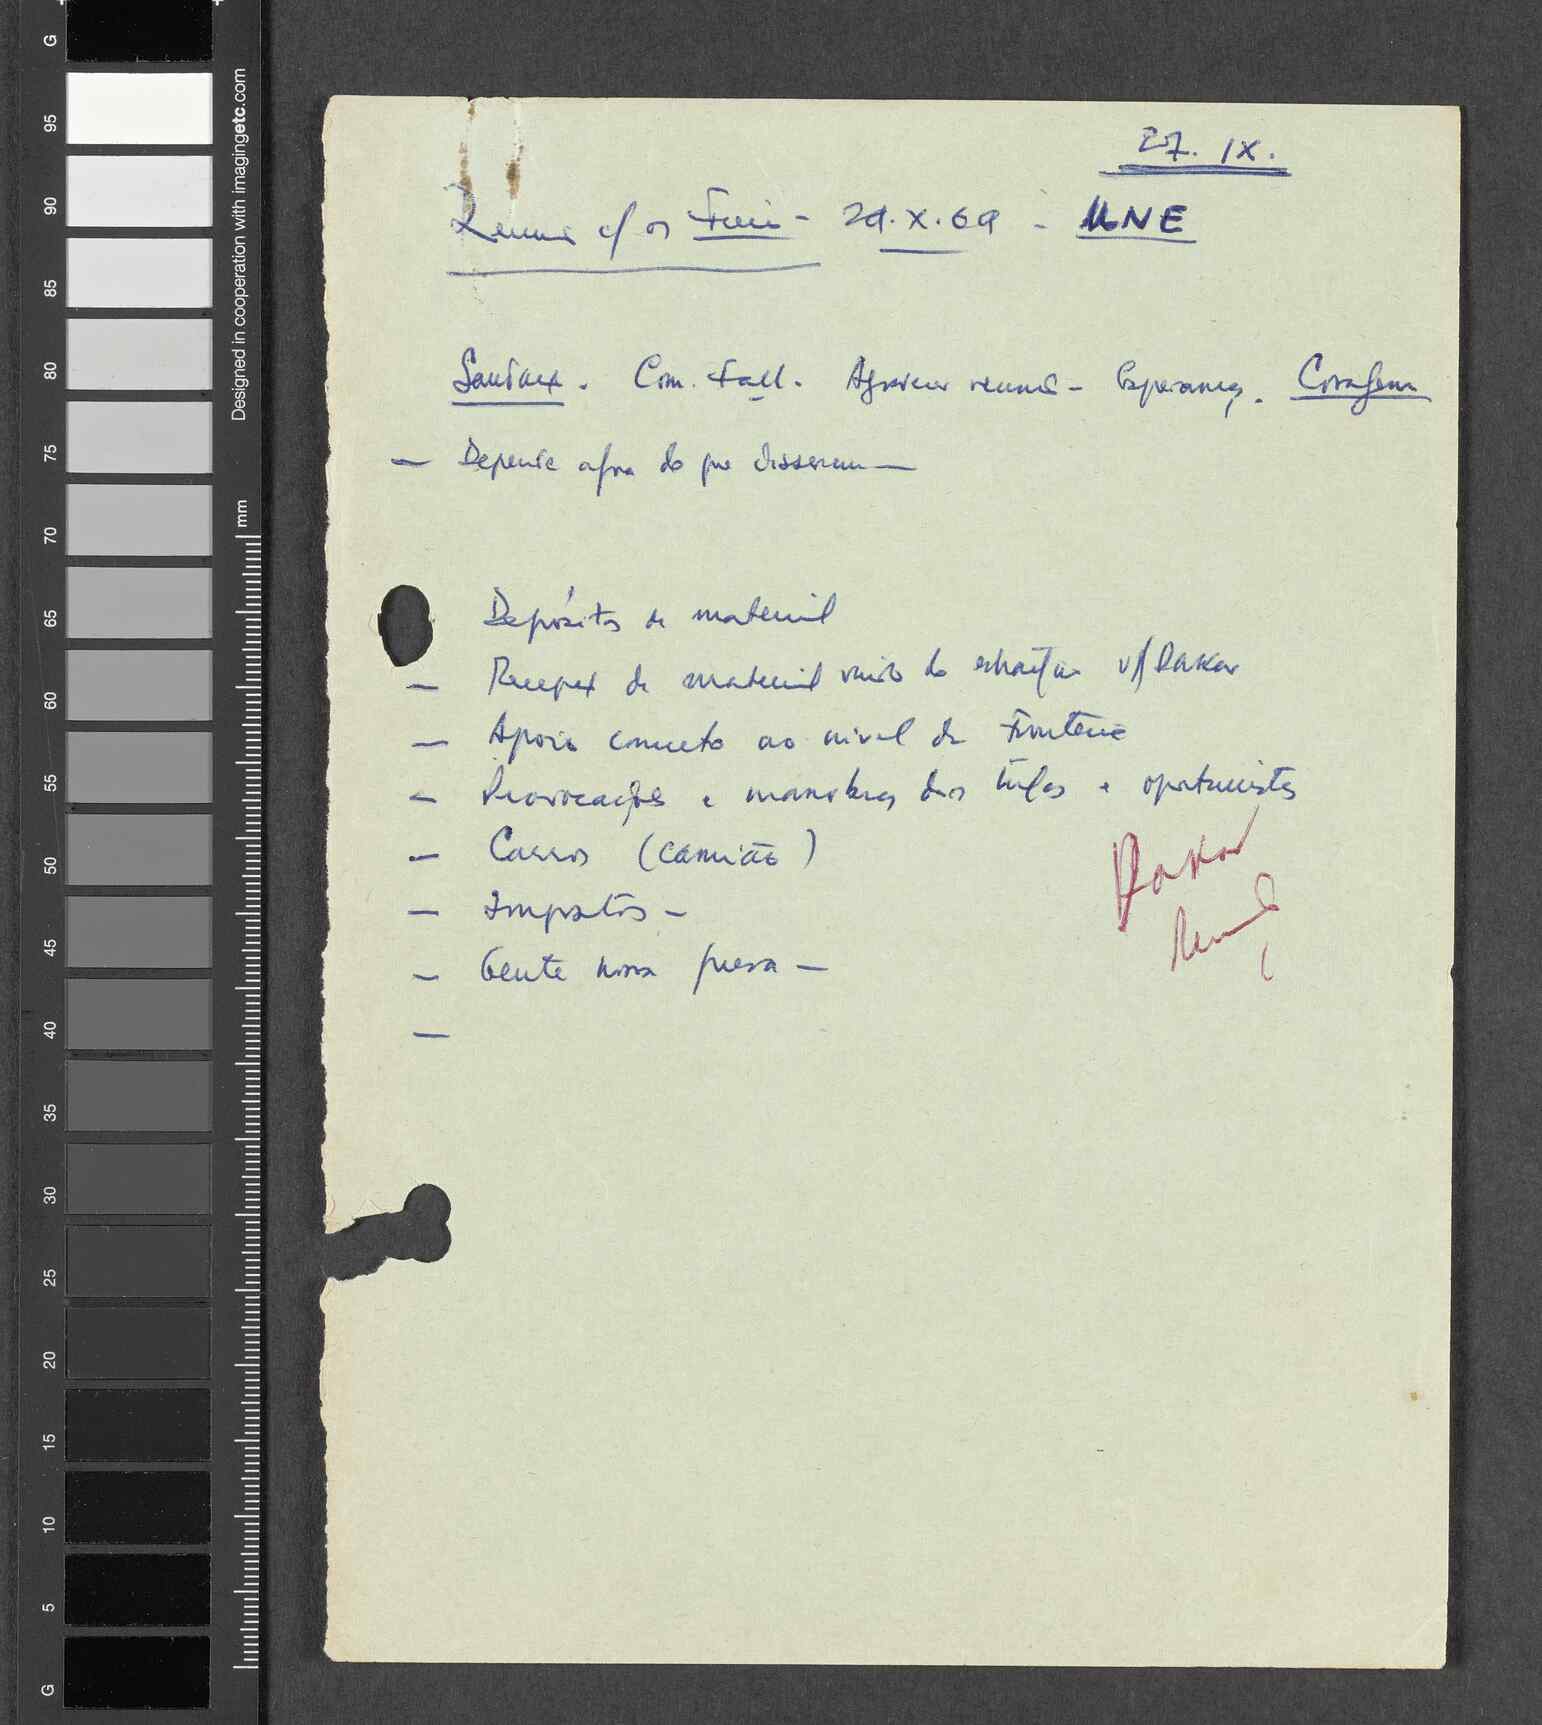 27. IX.
Reunião c/ os - 29.X.69 - UNE
Saudação. Com. Fall. Agradecer reunião - Esperança. Coragem
— Depende agora do que disserem —
Depósitos de material
— Recepção de material vindo do v/ Dakar
— Apoio concreto ao nível da Fronteira
— Provocações e manobras dos tugas e oportunistas
— Carros (camião)
— Impostos -
— Gente nossa presa —
—
Dakar
G
95
90
85
80
75
70
65
60
55
50
45
40
35
30
25
20
15
10
5
G
mm
Designed in cooperation with imagingetc.com